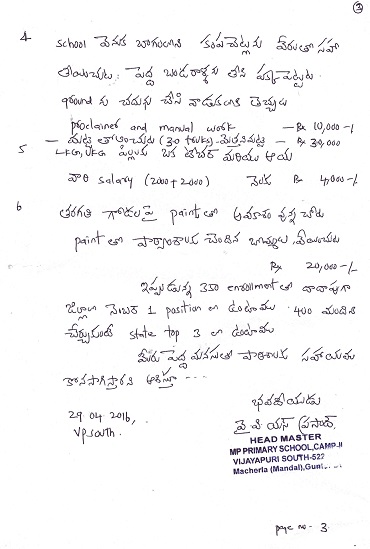 ③
4 school వెనుక బాగులేని కంపచెట్లను వేరుతో సహా
తీయించుట. పెద్ద బండరాళ్ళను తీసి పక్కన పెట్టుట.
ground ను చదును చేసి వాడుకలోకి తెచ్చుట
proclainer and manual work — Rs 10,000 -/-
— మట్టి తోలించుట (30 trucks) - Rs 30,000
5 LKG, UKG పిల్లలకు ఒక టీచర్ మరియు ఆయా
వారి salary (2000 + 2000) నెలకు Rs 4,000 -/-
6 తరగతి గోడలపై paint తో అవకాశం ఉన్న చోట
paint తో పాఠ్యాంశాలకు చెందిన బొమ్మలు వేయించుట
Rs 20,000 -/-
ఇప్పుడున్న 350 enrollment తో దాదాపుగా
జిల్లాలో నెంబర్ 1 position లో ఉంటాము. 400 మందిని
చేర్చుకుంటే state top 3 లో ఉంటాము
మీరు పెద్ద మనసుతో పాఠశాలకు సహాయము
కొనసాగిస్తారని ఆశిస్తూ ...
భవదీయుడు
29.04.2016,
VP south.
వై.వి.యస్ ప్రసాద్,
HEAD MASTER
MP PRIMARY SCHOOL, CAMP-II
VIJAYAPURI SOUTH-522
Macherla (Mandal), Gunt
page no - 3